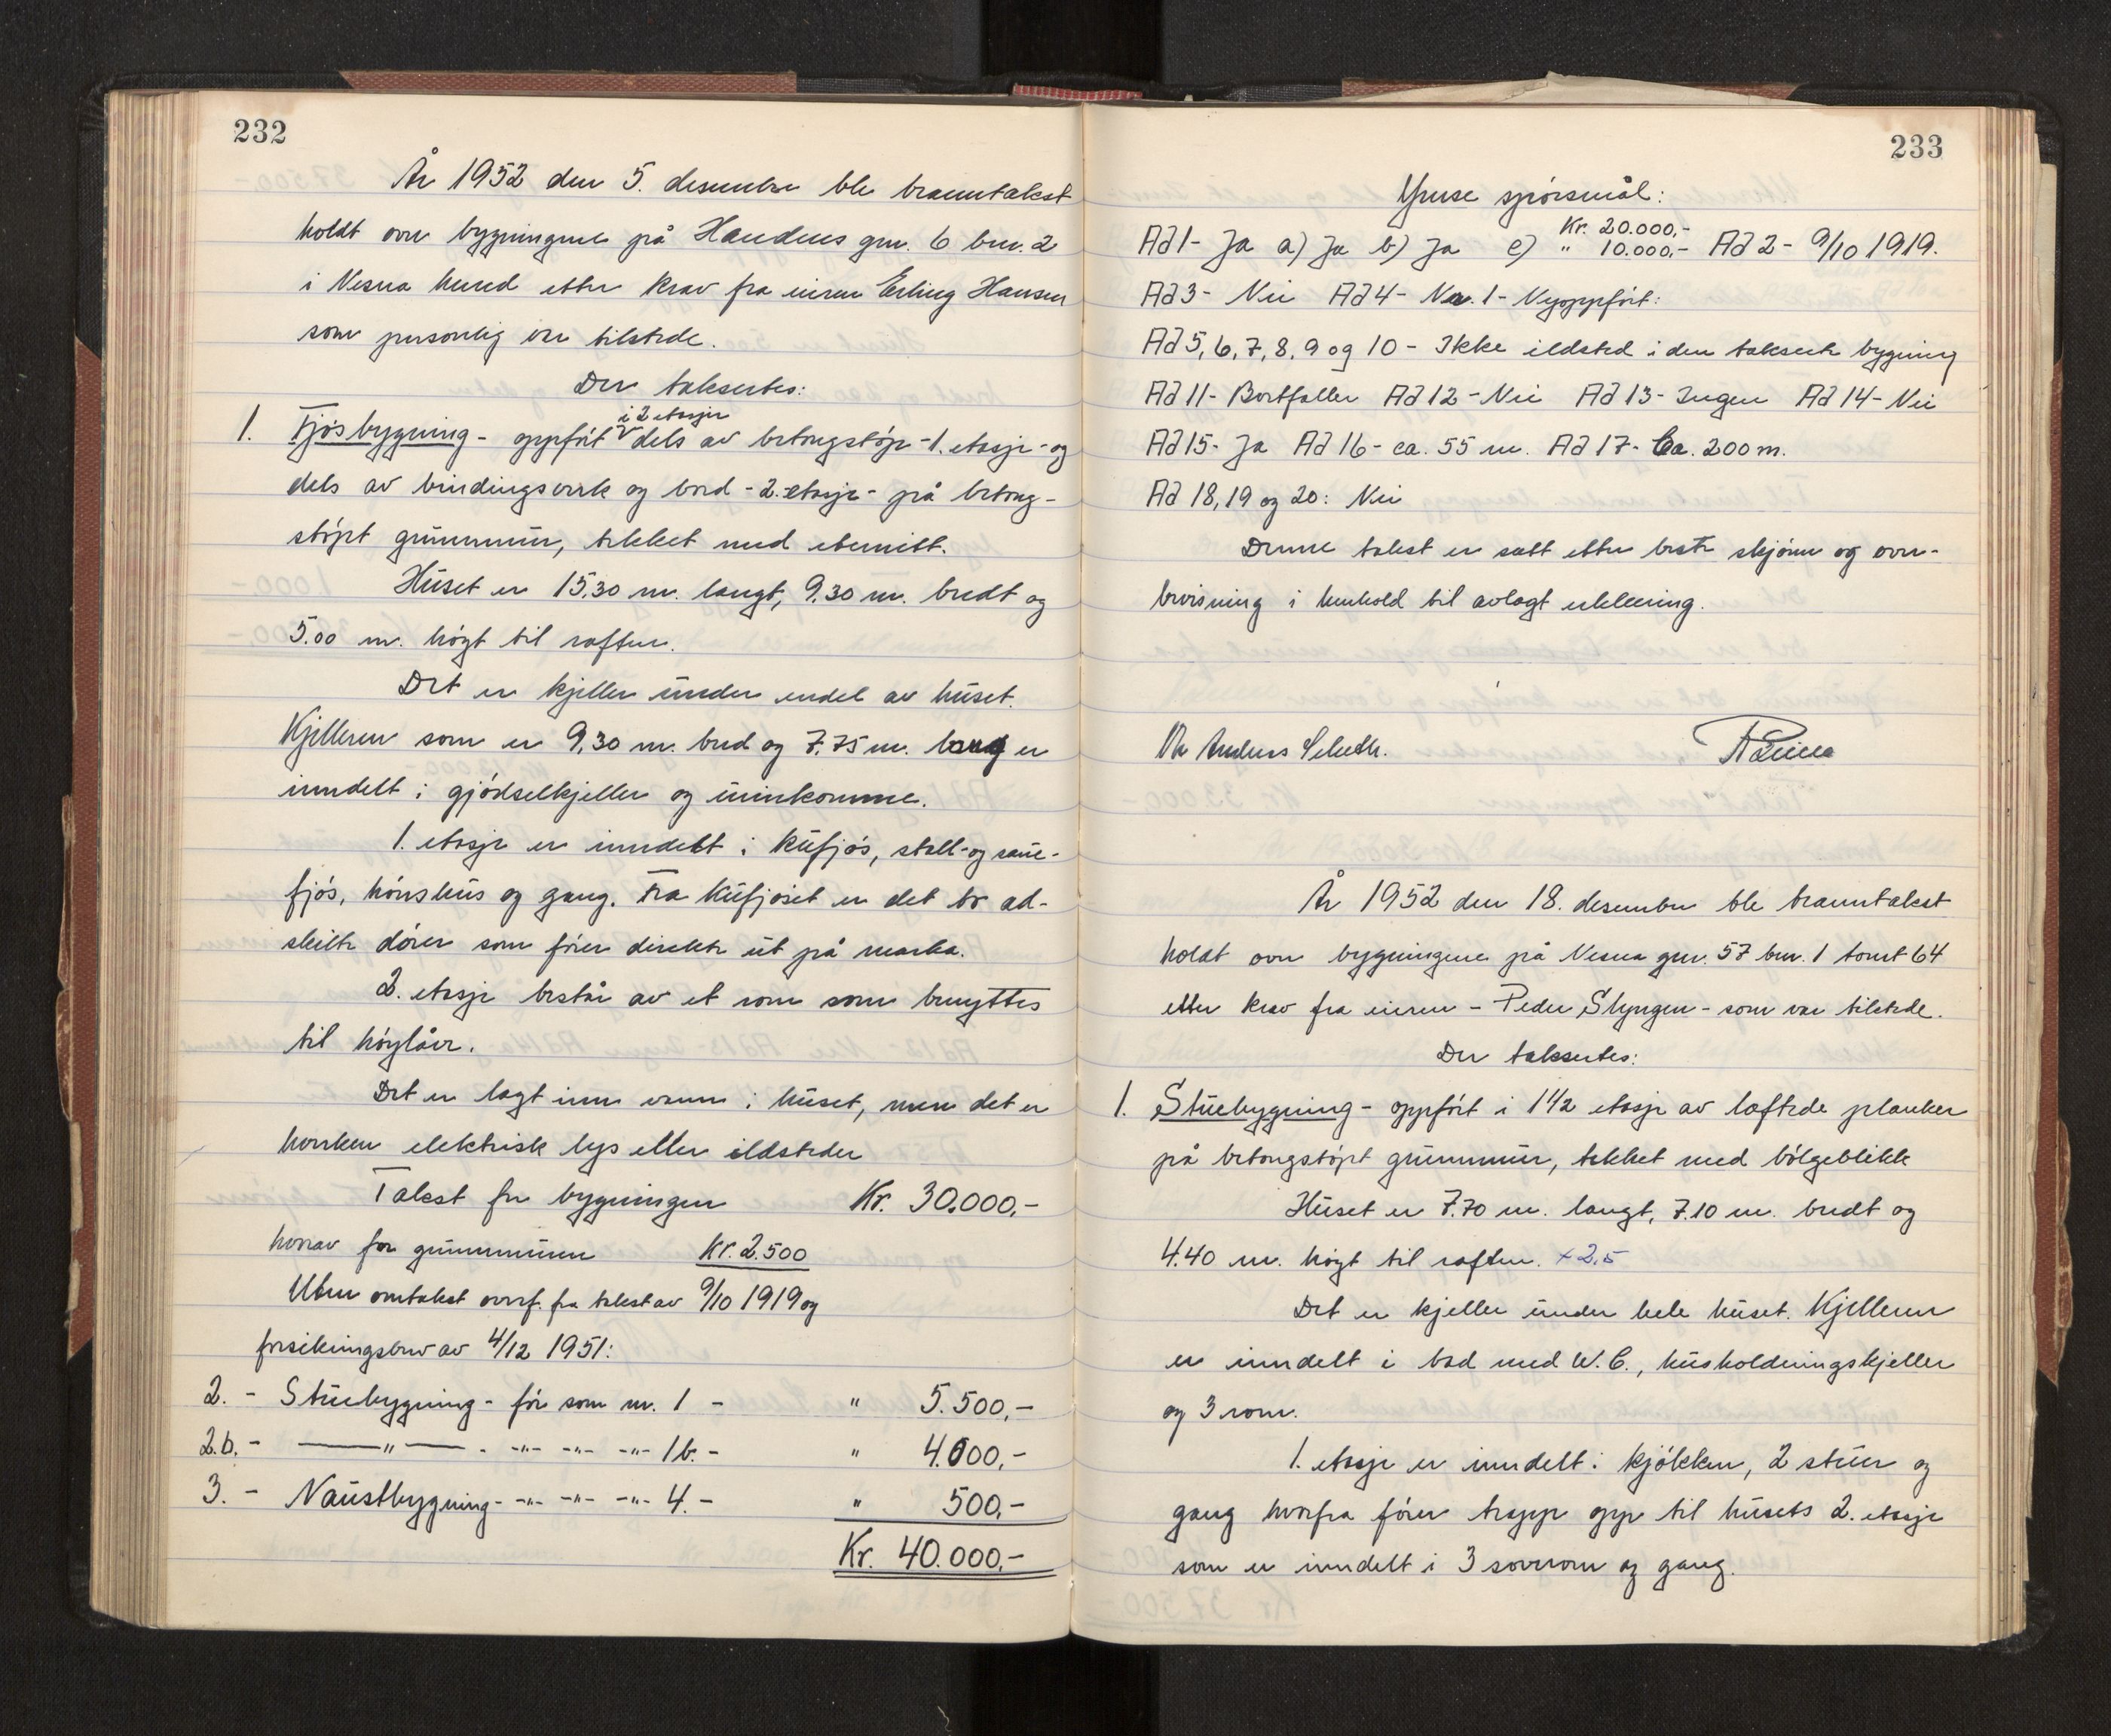 232
År 1952 den 5. desember ble branntakst
holdt over bygningene på Handnes gnr. 6 bnr. 2
i Nesna herred etter krav fra eieren Erling Hansen
som personlig var tilstede.
Der taksertes:
1. Fjøsbygning - oppført i 2 etasjer dels av betongstøpe - 1. etasje - og
dels av bindingsverk og bord - 2. etasje - på betong-
støpt grunnmur, tekket med eternitt.
Huset er 15,30 m. langt, 9,30 m. bredt og
5.00 m. høgt til raften.
Det er kjeller under endel av huset.
Kjelleren som er 9,30 m. bred og 7.75 m. lang er
inndelt i gjødselkjeller og urinkomme.
1. etasje er inndelt i kufjøs, stall- og saue-
fjøs, hønshus og gang. Fra kufjøset er det to ad-
skilte dører som fører direkte ut på marka.
2. etasje består av et rom som benyttes
til høylåve.
Det er lagt inn vann i huset, men det er
hverken elektrisk lys eller ildsteder
Takst for bygningen Kr. 30.000,-
herav for grunnmuren Kr. 2.500
Uten omtakst overf. fra takst av 9/10 1919 og
forsikringsbrev av 4/12 1951:
2. - Stuebygning - før som nr. 1 - " 5.500,-
2.b. - —"— - -"- -"- -"- 1b. - " 4.000,-
3. - Naustbygning - -"- -"- -"- 4. - " 500,-
Kr. 40.000,-
233
Ymse spørsmål:
Kr. 20.000,-
Ad 1- Ja a) Ja b) Ja c) " 10.000,- Ad 2 - 9/10 1919.
Ad 3- Nei Ad 4- Nr. 1 - Nyoppført:
Ad 5, 6, 7, 8, 9 og 10 - Ikke ildsted i den takserte bygning
Ad 11- Bortfaller Ad 12 - Nei Ad 13- Ingen Ad 14- Nei
Ad 15- Ja Ad 16- ca. 55 m. Ad 17- Ca. 200 m.
Ad 18, 19 og 20: Nei
Denne takst er satt etter beste skjønn og over-
bevisning i henhold til avlagt erklæring.
Anders
År 1952 den 18. desember ble branntakst
holdt over bygningene på Nesna gnr. 57 bnr. 1 tomt 64
etter krav fra eieren - Peder Slyngen - som var tilstede.
Der taksertes:
1. Stuebygning - oppført i 1 1/2 etasje av laftede planker
på betongstøpt grunnmur, tekket med bølgeblikk
Huset er 7.70 m. langt, 7.10 m. bredt og
4.40 m. høgt til raften. + 2,5
Det er kjeller under hele huset. Kjelleren
er inndelt i bad med W.C., husholdningskjeller
og 3 rom.
1. etasje er inndelt i kjøkken, 2 stuer og
gang hvorfra fører trapp opp til husets 2. etasje
som er inndelt i 3 soverom og gang.